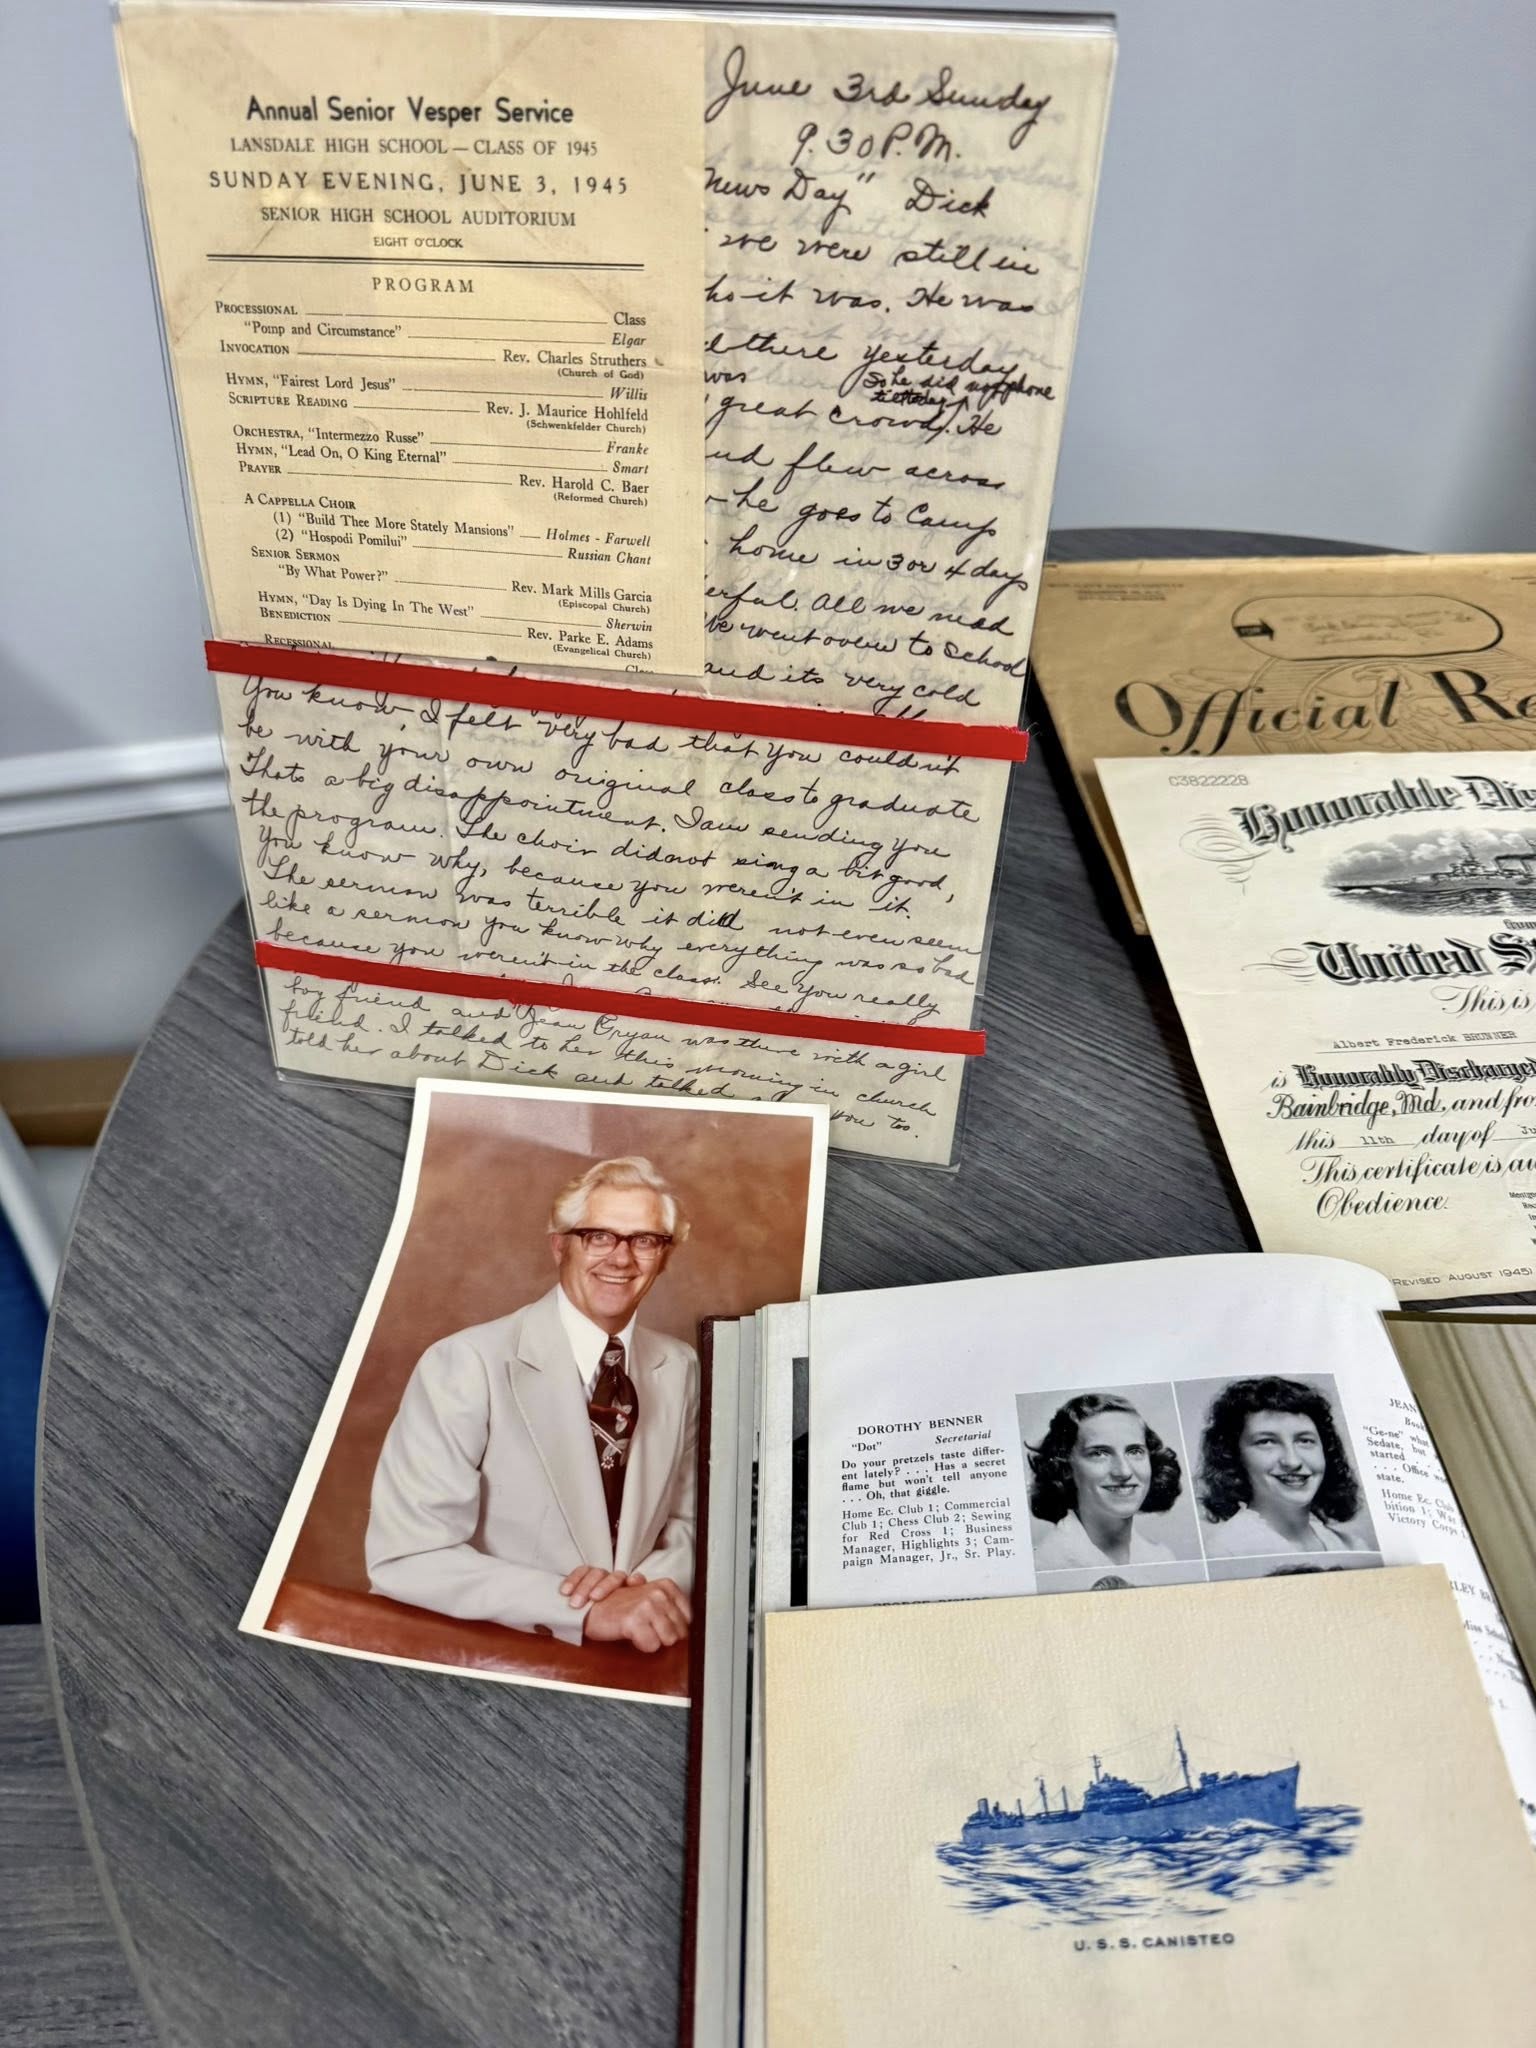 Annual Senior Vesper Service
LANSDALE HIGH SCHOOL — CLASS OF 1945
SUNDAY EVENING, JUNE 3, 1945
SENIOR HIGH SCHOOL AUDITORIUM
EIGHT O'CLOCK
PROGRAM
PROCESSIONAL Class
"Pomp and Circumstance" Elgar
INVOCATION Rev. Charles Struthers
(Church of God)
HYMN, "Fairest Lord Jesus" Willis
SCRIPTURE READING Rev. J. Maurice Hohlfeld
(Schwenkfelder Church)
ORCHESTRA, "Intermezzo Russe" Franke
HYMN, "Lead On, O King Eternal" Smart
PRAYER Rev. Harold C. Baer
(Reformed Church)
A CAPPELLA CHOIR
(1) "Build Thee More Stately Mansions" Holmes - Farwell
(2) "Hospodi Pomilui" Russian Chant
SENIOR SERMON
"By What Power?" Rev. Mark Mills Garcia
(Episcopal Church)
HYMN, "Day Is Dying In The West" Sherwin
BENEDICTION Rev. Parke E. Adams
(Evangelical Church)
RECESSIONAL Class
June 3rd Sunday
9.30 P.M.
News Day" Dick
we were still in
it was. He was
there yesterday
was So he did not phone
great crowd. He
flew across
he goes to Camp
home in 3 or 4 days
All we need
We went over to School
and its very cold
You know, I felt very bad that you couldn't
be with your own original class to graduate
Thats a big disappointment. I am sending you
the program. The choir did not sing a bit good,
You know why, because you weren't in it.
The sermon was terrible it did not even seem
like a sermon you know why everything was so bad
because you weren't in the class. See you really
boy friend and Jean Gryan was there with a girl
friend. I talked to her this morning in church
told her about Dick and talked you too.
Official Re
C3822228
Honorable Dis
United St
This is
Albert Frederick BRUNNER
is Honorably Discharged
Bainbridge, Md, and fro
this 11th day of Ju
This certificate is au
Obedience.
REVISED AUGUST 1945)
DOROTHY BENNER
"Dot" Secretarial
Do your pretzels taste differ-
ent lately? . . . Has a secret
flame but won't tell anyone
. . . Oh, that giggle.
Home Ec. Club 1; Commercial
Club 1; Chess Club 2; Sewing
for Red Cross 1; Business
Manager, Highlights 3; Cam-
paign Manager, Jr., Sr. Play.
JEAN
"Ge-ne" what
Sedate, but
started . . .
. . . Office wo
state.
Home Ec. Club
bition 1; War
Victory Corps 1
U. S. S. CANISTEO